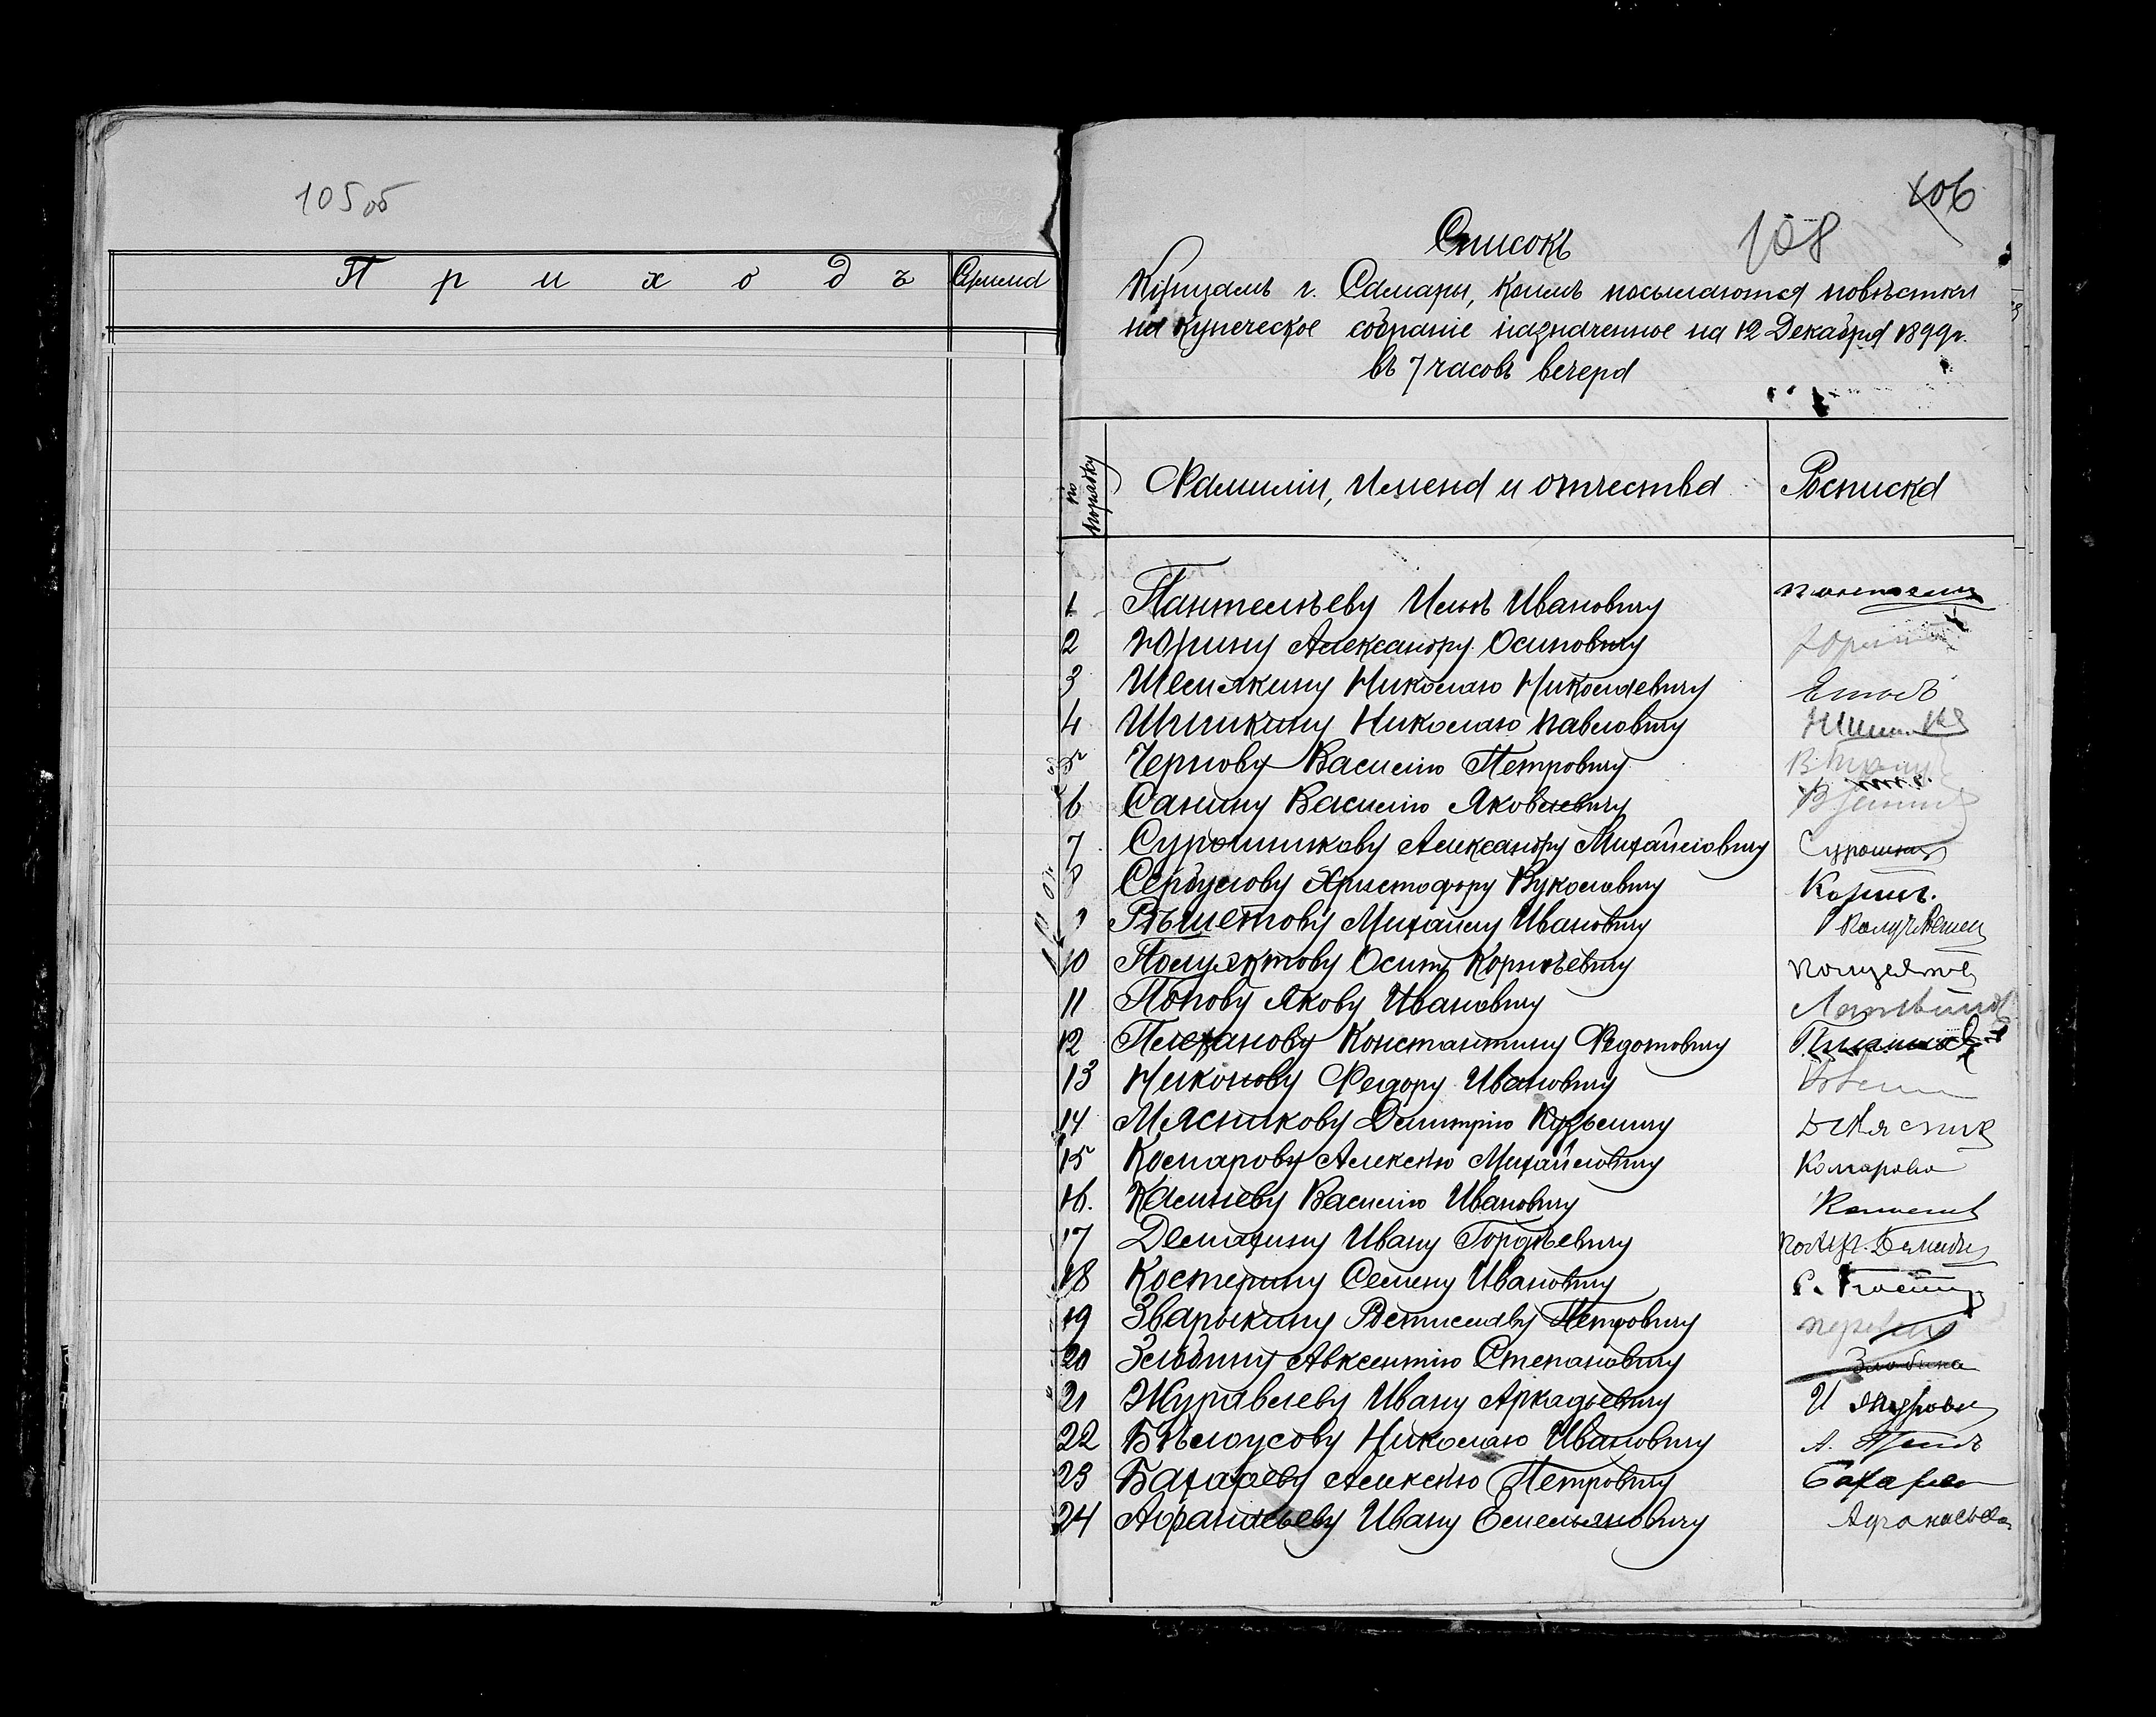 105об
Приходъ Сумма
106
108
Списокъ
Купцамъ г. Самары, коимъ посылаются повѣстки
на купеческое собраніе назначенное на 12 Декабря 1899г.
въ 7 часовъ вечера
по порядку Фамиліи, имена и отчества Росписка
1 Пантелѣеву Ильѣ Ивановичу
2 Юрину Александру Осиповичу Юринъ
3 Шемякину Николаю Николаевичу
4 Шишкину Николаю Павловичу
5 Чернову Василію Петровичу
6 Санину Василію Яковлевичу
7 Сурошникову Александру Михайловичу Сурошник
8 Сербулову Христофору Вуколовичу
9 Рѣшетову Михаилу Ивановичу
10 Полуяктову Осипу Корнѣевичу
11 Попову Якову Ивановичу
12 Плеханову Константину Федотовичу
13 Никонову Федору Ивановичу
14 Мясникову Дмитрію Кузьмичу Д Мясник
15 Комарову Алексѣю Михайловичу Комарова
16. Камневу Василію Ивановичу
17 Демахину Ивану Гордѣевичу
18 Костерину Семену Ивановичу
19 Зварыкину Ростиславу Петровичу
20 Злобину Авксентію Степановичу Злобина
21 Журавлеву Ивану Аркадьевичу И
22 Бѣлоусову Николаю Ивановичу А.
23 Бахареву Алексѣю Петровичу Бахарев
24 Афанасьеву Ивану Емельяновичу Афанасьева